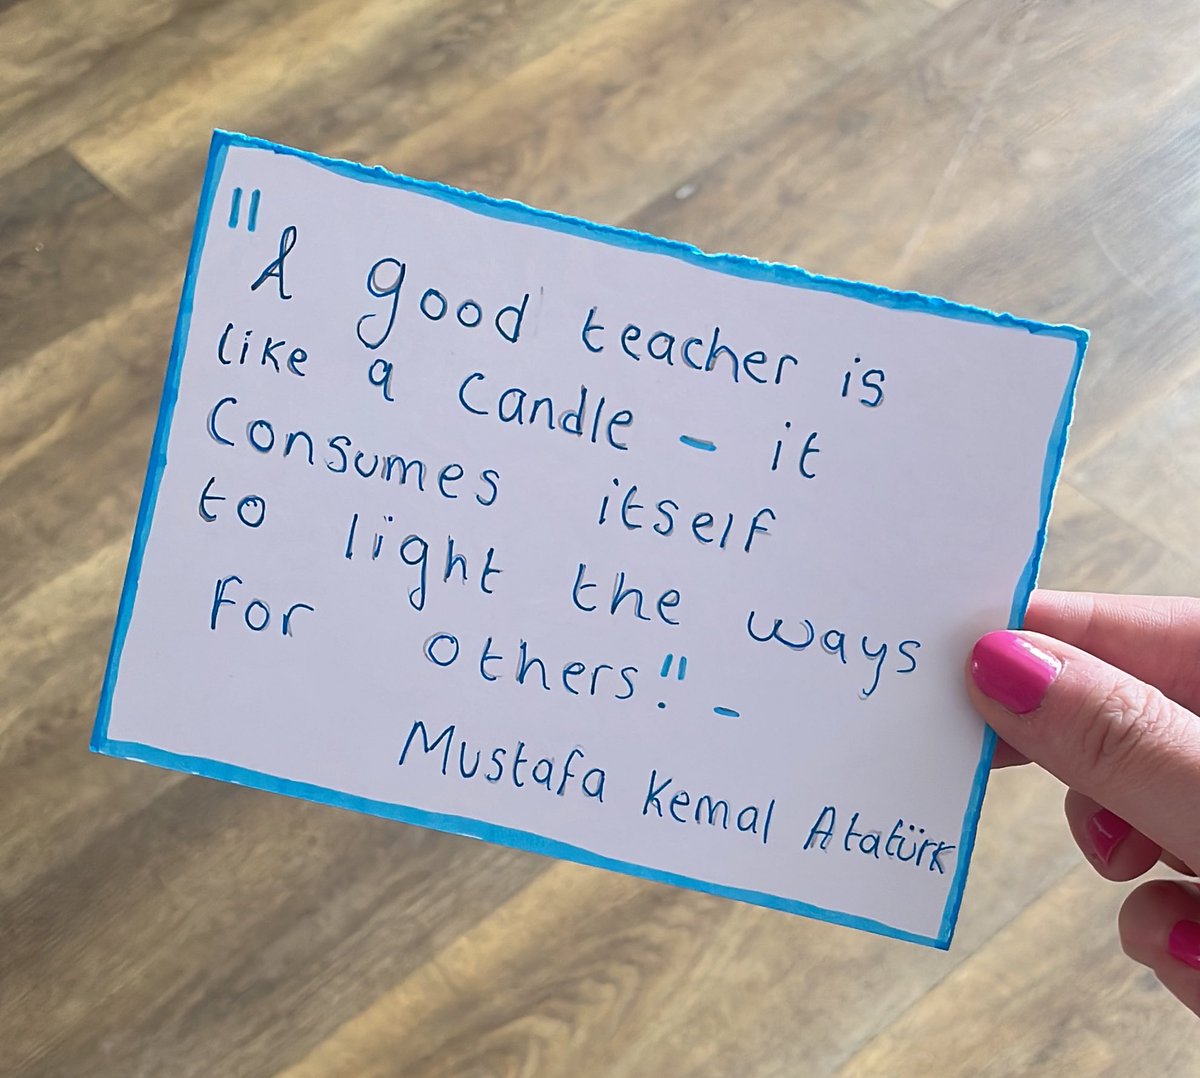 "A good teacher is
like a candle - it
Consumes itself
to light the ways
For others." -
Mustafa Kemal Atatürk